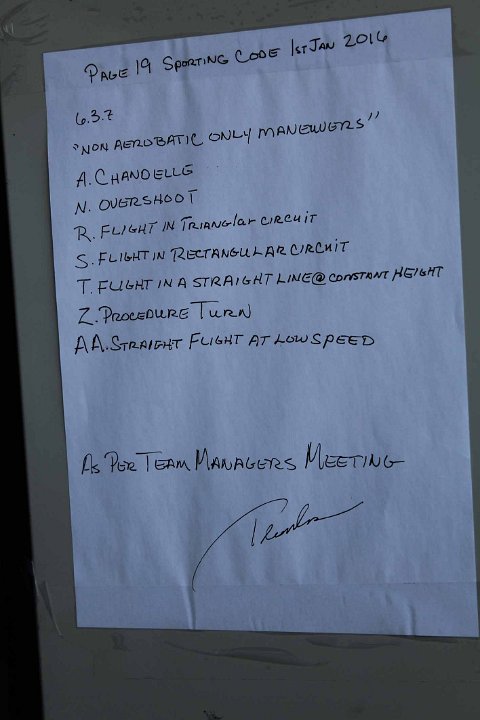 PAGE 19 SPORTING CODE 1ST JAN 2016
6.3.7
"NON AEROBATIC ONLY MANEUVERS"
A. CHANDELLE
N. OVERSHOOT
R. FLIGHT IN TRIANGlar CIRCUIT
S. FLIGHT IN RECTANGULAR CIRCUIT
T. FLIGHT IN A STRAIGHT LINE @ CONSTANT HEIGHT
Z. PROCEDURE TURN
AA. STRAIGHT FLIGHT AT LOW SPEED
AS PER TEAM MANAGERS MEETING